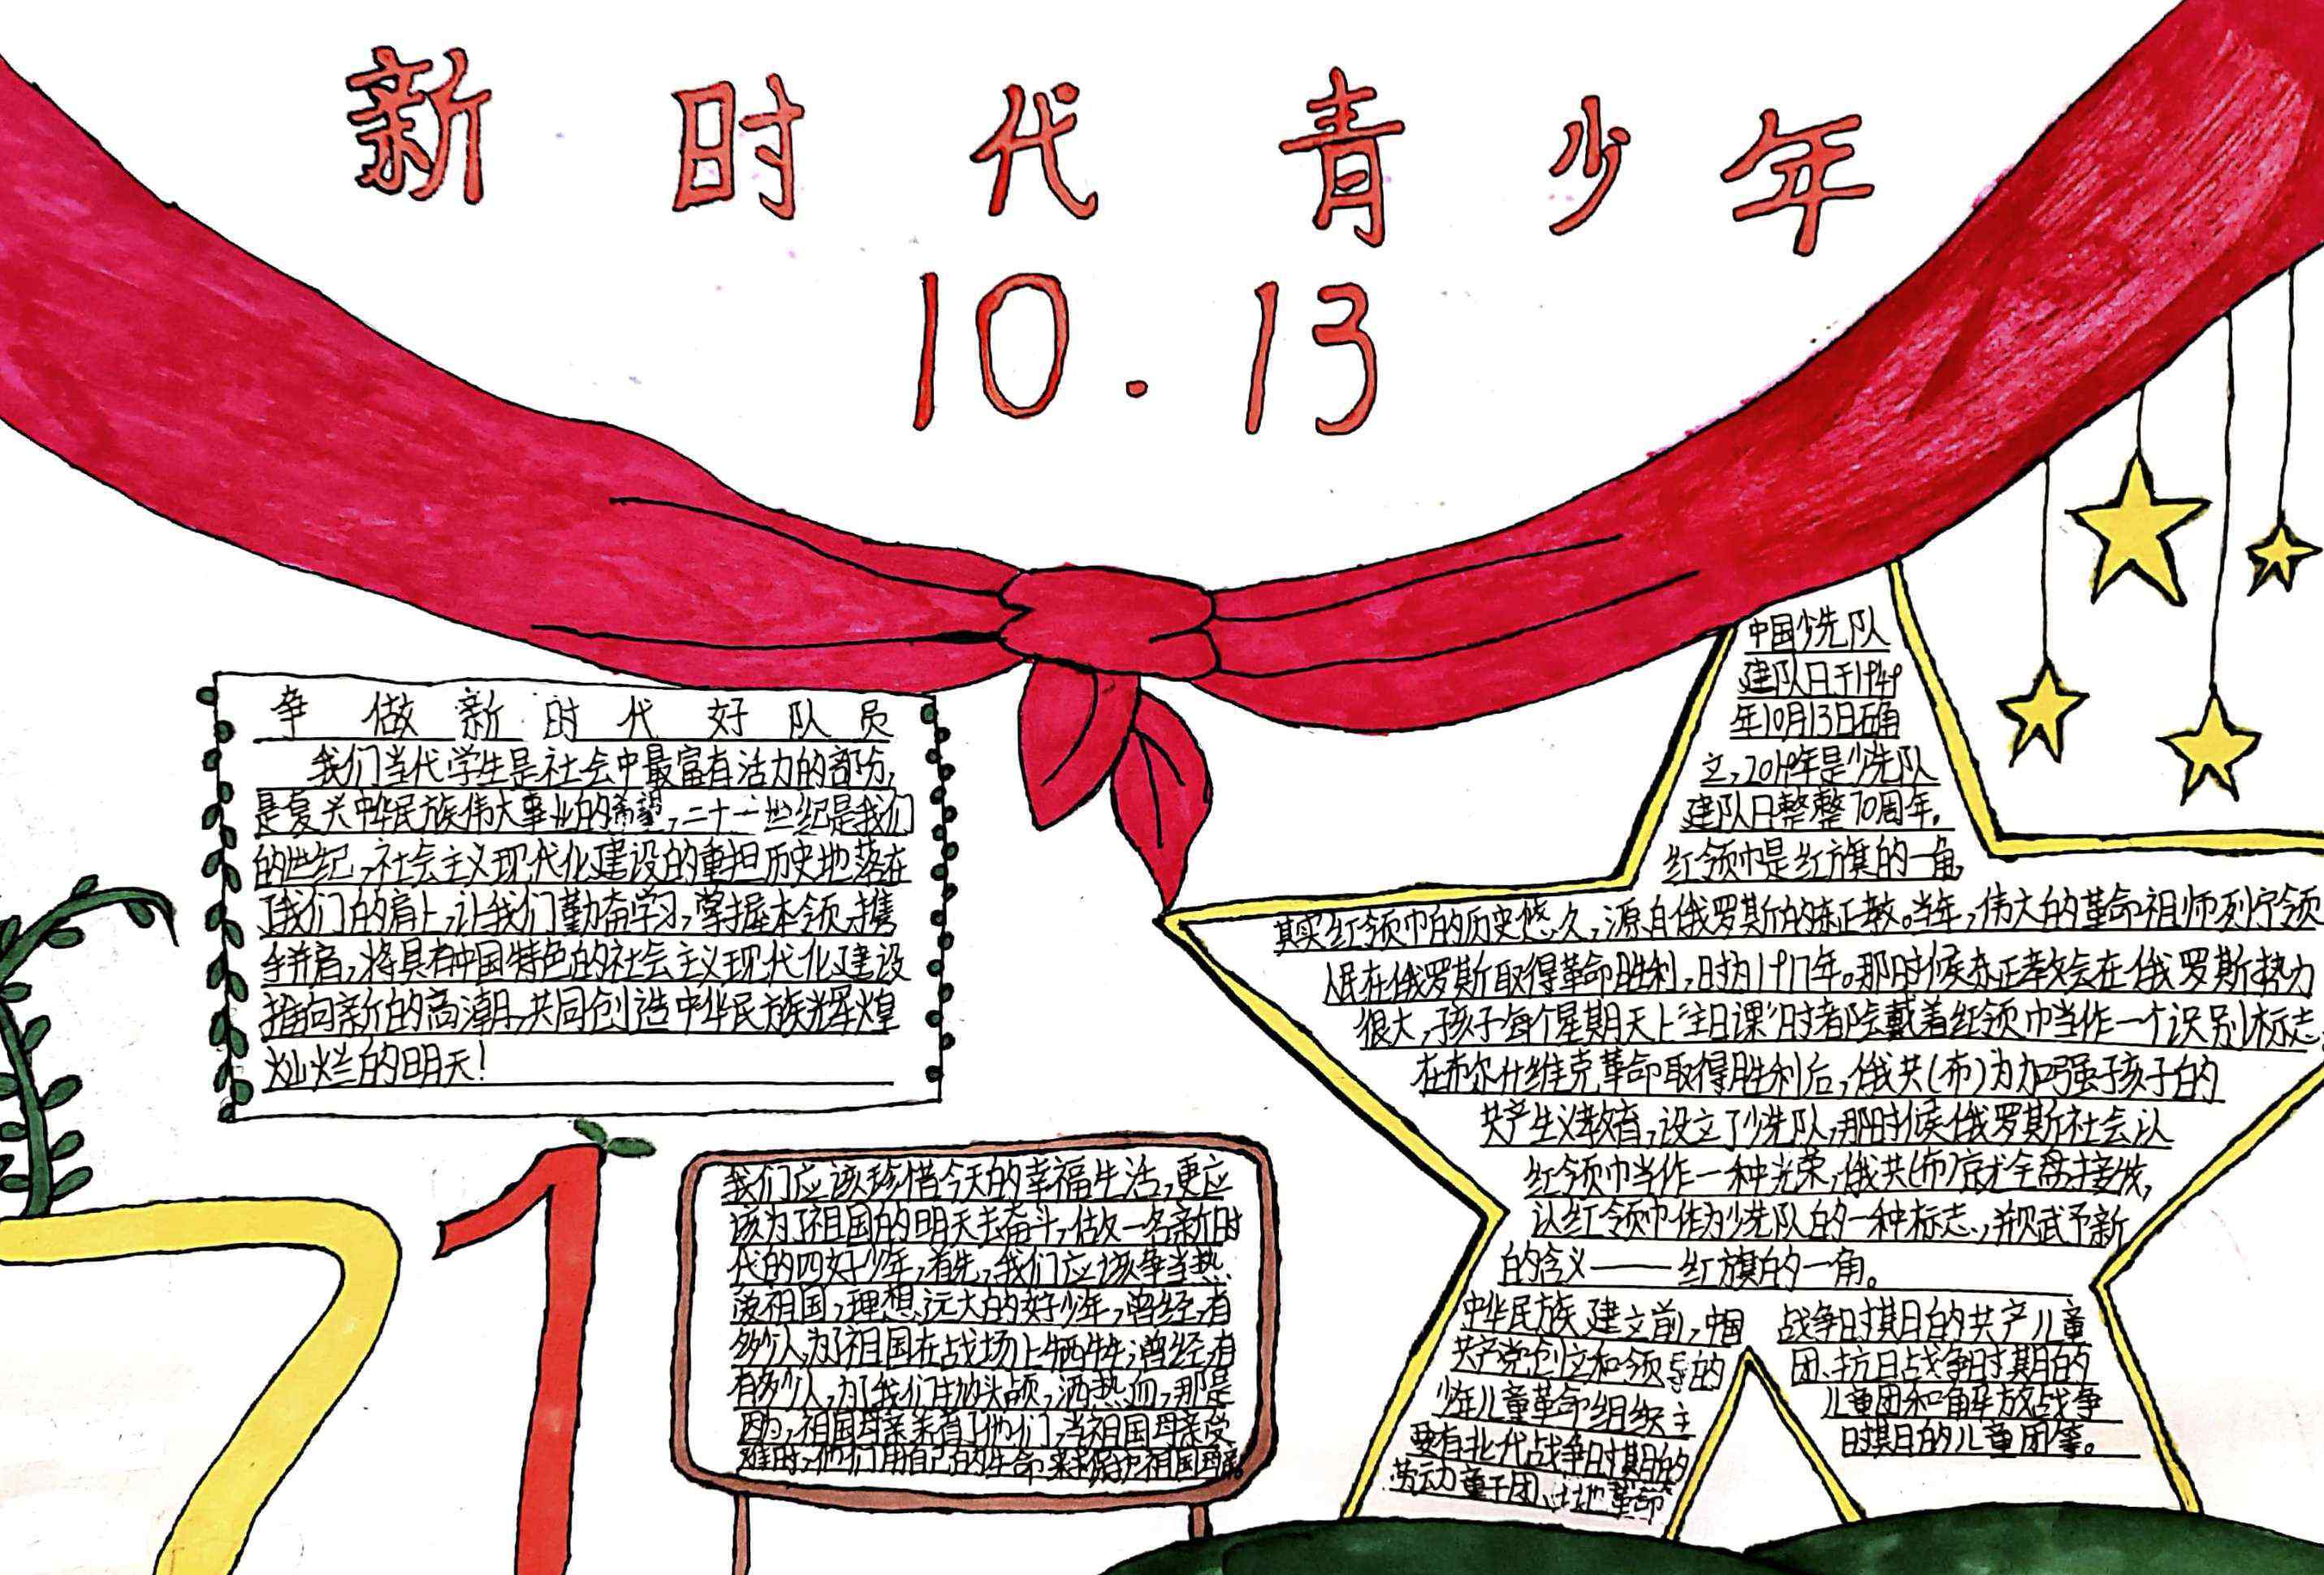 新时代青少年
10.13
争做新时代好队员
我们当代学生是社会中最富有活力的部分,
是复兴中华民族伟大事业的希望,二十一世纪是我们
的世纪,社会主义现代化建设的重担历史地落在
了我们的肩上,让我们勤奋学习,掌握本领,携
手并肩,将具有中国特色的社会主义现代化建设
推向新的高潮,共同创造中华民族辉煌
灿烂的明天!
71
我们应该珍惜今天的幸福生活,更应
该为了祖国的明天去奋斗,做一名新时
代的四好少年,首先,我们应该争当热
爱祖国,理想远大的好少年,曾经,有
多少人,为了祖国在战场上牺牲;曾经,有
有多少人,为了我们抛头颅,洒热血,那是
因为,祖国母亲养育了他们,当祖国母亲受
难时,他们用自己的生命来保护祖国母亲。
中国少先队
建队日于1949
年10月13日确
立,2019年是少先队
建队日整整70周年。
红领巾是红旗的一角,
其实红领巾的历史悠久,源自俄罗斯的东正教。当年,伟大的革命祖师列宁领
人民在俄罗斯取得革命胜利,时为1917年。那时候东正教会在俄罗斯势力
很大,孩子每个星期天上“主日课”时都会戴着红领巾当作一个识别标志,
在布尔什维克革命取得胜利后,俄共(布)为加强子孩子的
共产主义教育,设立了少先队,那时候俄罗斯社会认
红领巾当作一种光荣,俄共(布)京才全盘接收,
认红领巾作为少先队的一种标志,并赋予新
的含义——红旗的一角。
中华民族建立前,中国
共产党创立和领导的
少年儿童革命组织主
要有北代战争时期的
劳动童子团、土地革命
战争时期的共产儿童
团、抗日战争时期的
儿童团和解放战争
时期的儿童团等。